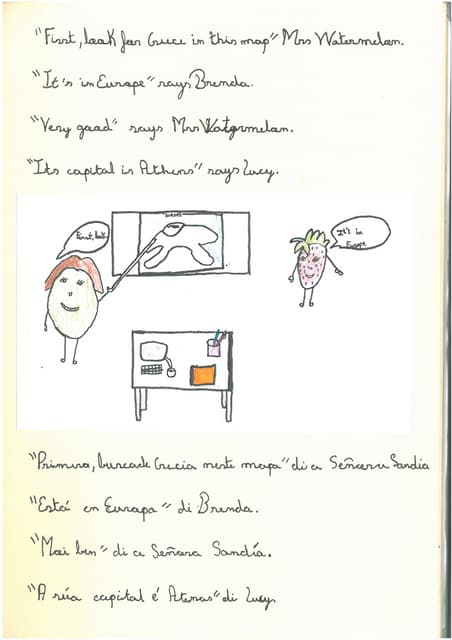 "First, look for Greece in this map" Mrs Watermelon.
"It's in Europe" says Brenda.
"Very good" says Mrs Watermelon.
"Its capital is Athens" says Lucy.
First, look
EUROPE
It's in
Europe
"Primero, buscade Grecia neste mapa" di a Señora Sandía
"Está en Europa" di Brenda.
"Moi ben" di a Señora Sandía.
"A súa capital é Atenas" di Lucy